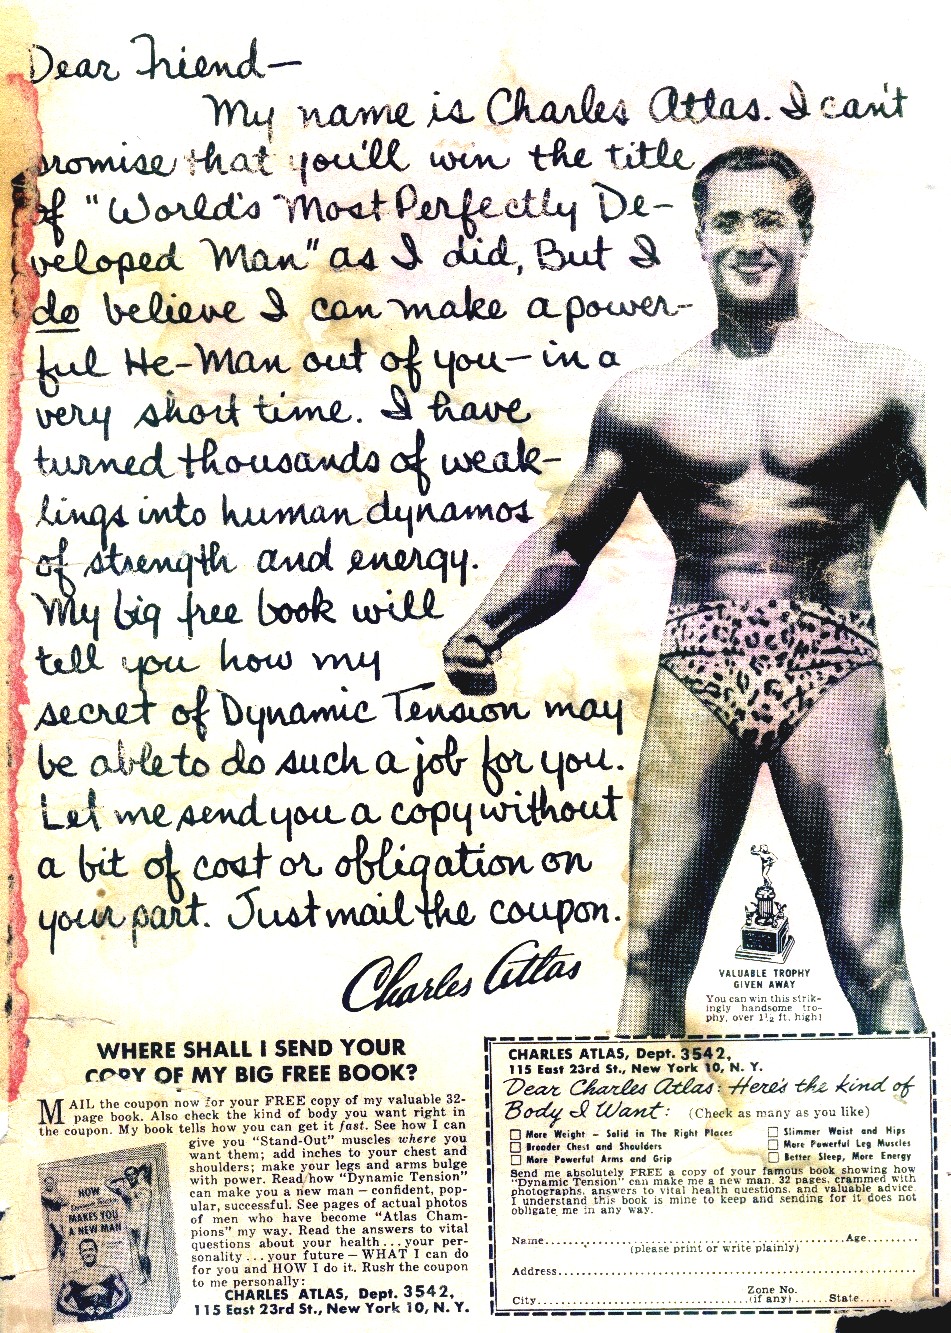 Dear Friend—
My name is Charles Atlas. I can't
promise that you'll win the title
of "World's Most Perfectly De-
veloped Man" as I did, But I
do believe I can make a power-
ful He-Man out of you—in a
very short time. I have
turned thousands of weak-
lings into human dynamos
of strength and energy.
My big free book will
tell you how my
secret of Dynamic Tension may
be able to do such a job for you.
Let me send you a copy without
a bit of cost or obligation on
your part. Just mail the coupon.
Charles Atlas
VALUABLE TROPHY
GIVEN AWAY
You can win this strik-
ingly handsome tro-
phy, over 1½ ft. high!
WHERE SHALL I SEND YOUR
COPY OF MY BIG FREE BOOK?
MAIL the coupon now for your FREE copy of my valuable 32-
page book. Also check the kind of body you want right in
the coupon. My book tells how you can get it fast. See how I can
give you "Stand-Out" muscles where you
want them; add inches to your chest and
shoulders; make your legs and arms bulge
with power. Read how "Dynamic Tension"
can make you a new man — confident, pop-
ular, successful. See pages of actual photos
of men who have become "Atlas Cham-
pions" my way. Read the answers to vital
questions about your health . . . your per-
sonality . . . your future — WHAT I can do
for you and HOW I do it. Rush the coupon
to me personally:
CHARLES ATLAS, Dept. 3542,
115 East 23rd St., New York 10, N. Y.
HOW
Dynamic Tension
MAKES YOU
A NEW MAN
CHARLES ATLAS, Dept. 3542,
115 East 23rd St., New York 10, N. Y.
Dear Charles Atlas: Here's the kind of
Body I Want: (Check as many as you like)
More Weight – Solid in The Right Places
Broader Chest and Shoulders
More Powerful Arms and Grip
Slimmer Waist and Hips
More Powerful Leg Muscles
Better Sleep, More Energy
Send me absolutely FREE a copy of your famous book showing how
"Dynamic Tension" can make me a new man. 32 pages, crammed with
photographs, answers to vital health questions, and valuable advice.
I understand this book is mine to keep and sending for it does not
obligate me in any way.
Name Age
(please print or write plainly)
Address
Zone No.
City (if any) State